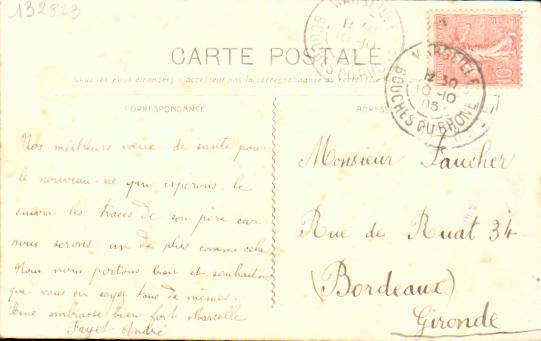 132823
MARSEILLE
12 30
10-10
BOUCHES DU RHONE
CARTE POSTALE
Tous les Pays étrangers n'acceptent pas la correspondance au
CORRESPONDANCE
Nos meilleurs vœux de santé pour
le nouveau-né qui esperons-le
suivra les traces de son père car
nous serons un de plus comme cela.
Nous nous portons bien et souhaitons
que vous en soyez tous de mêmes.
embrasse bien fort Marcelle
Fayet André
ADRESSE
MARSEILLE
12 30
10-10
05
BOUCHES DU RHONE
10
Monsieur Faucher
Rue de Ruat 34
(Bordeaux)
Gironde